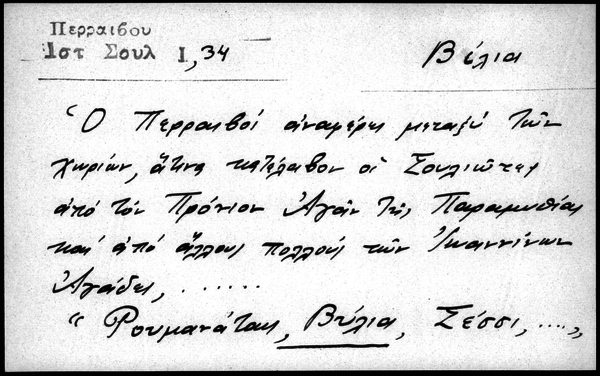 Περραιβου
Ιστ Σουλ Ι, 34
Βίλια
"Ο Περραιβός αναφέρει μεταξύ τῶν
χωρίων, ἅτινα κατέλαβον οἱ Σουλιῶτες
ἀπό τόν Πρόνιον Ἀγᾶν τῆς Παραμυθίας
καί ἀπό ἄλλους πολλούς τῶν Ἰωαννίνων
Ἀγάδες, .......
"Ρουμανάτας, Βύλια, Σέσσι, ....,,